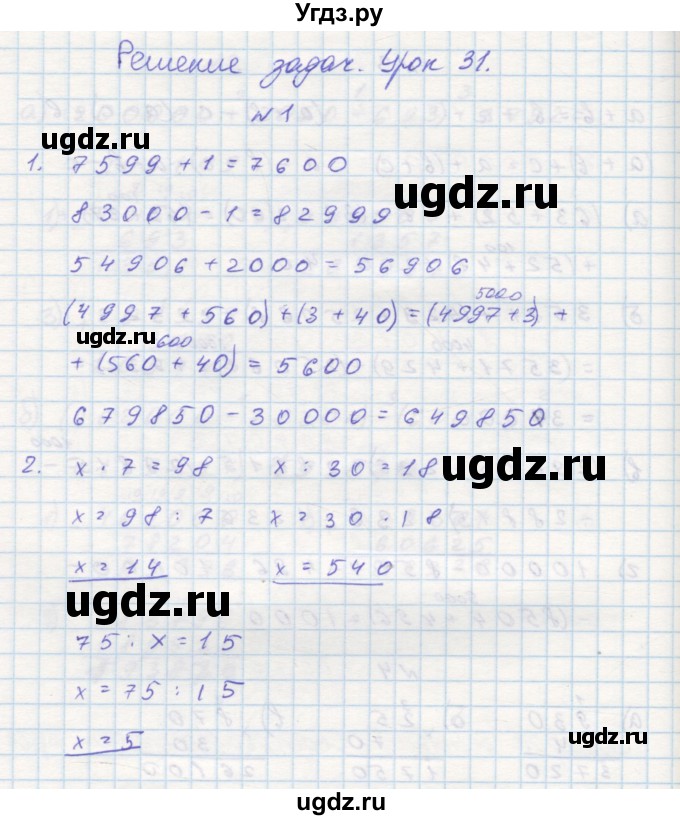 Угдз.ру
Решение задач. Урок 31.
№1
ugdz.ru
1. 7599 + 1 = 7600
83000 - 1 = 82999
ugdz.ru
54906 + 2000 = 56906
5000
(4997 + 560) + (3 + 40) = (4997 + 3) +
ugdz.ru
600
+ (560 + 40) = 5600
679850 - 30000 = 649850
2. x · 7 = 98 x : 30 = 18
ugdz.ru
x = 98 : 7 x = 30 · 18
x = 14 x = 540
ugdz.ru
75 : x = 15
x = 75 : 15
x = 5
ugdz.ru
ugdz.ru